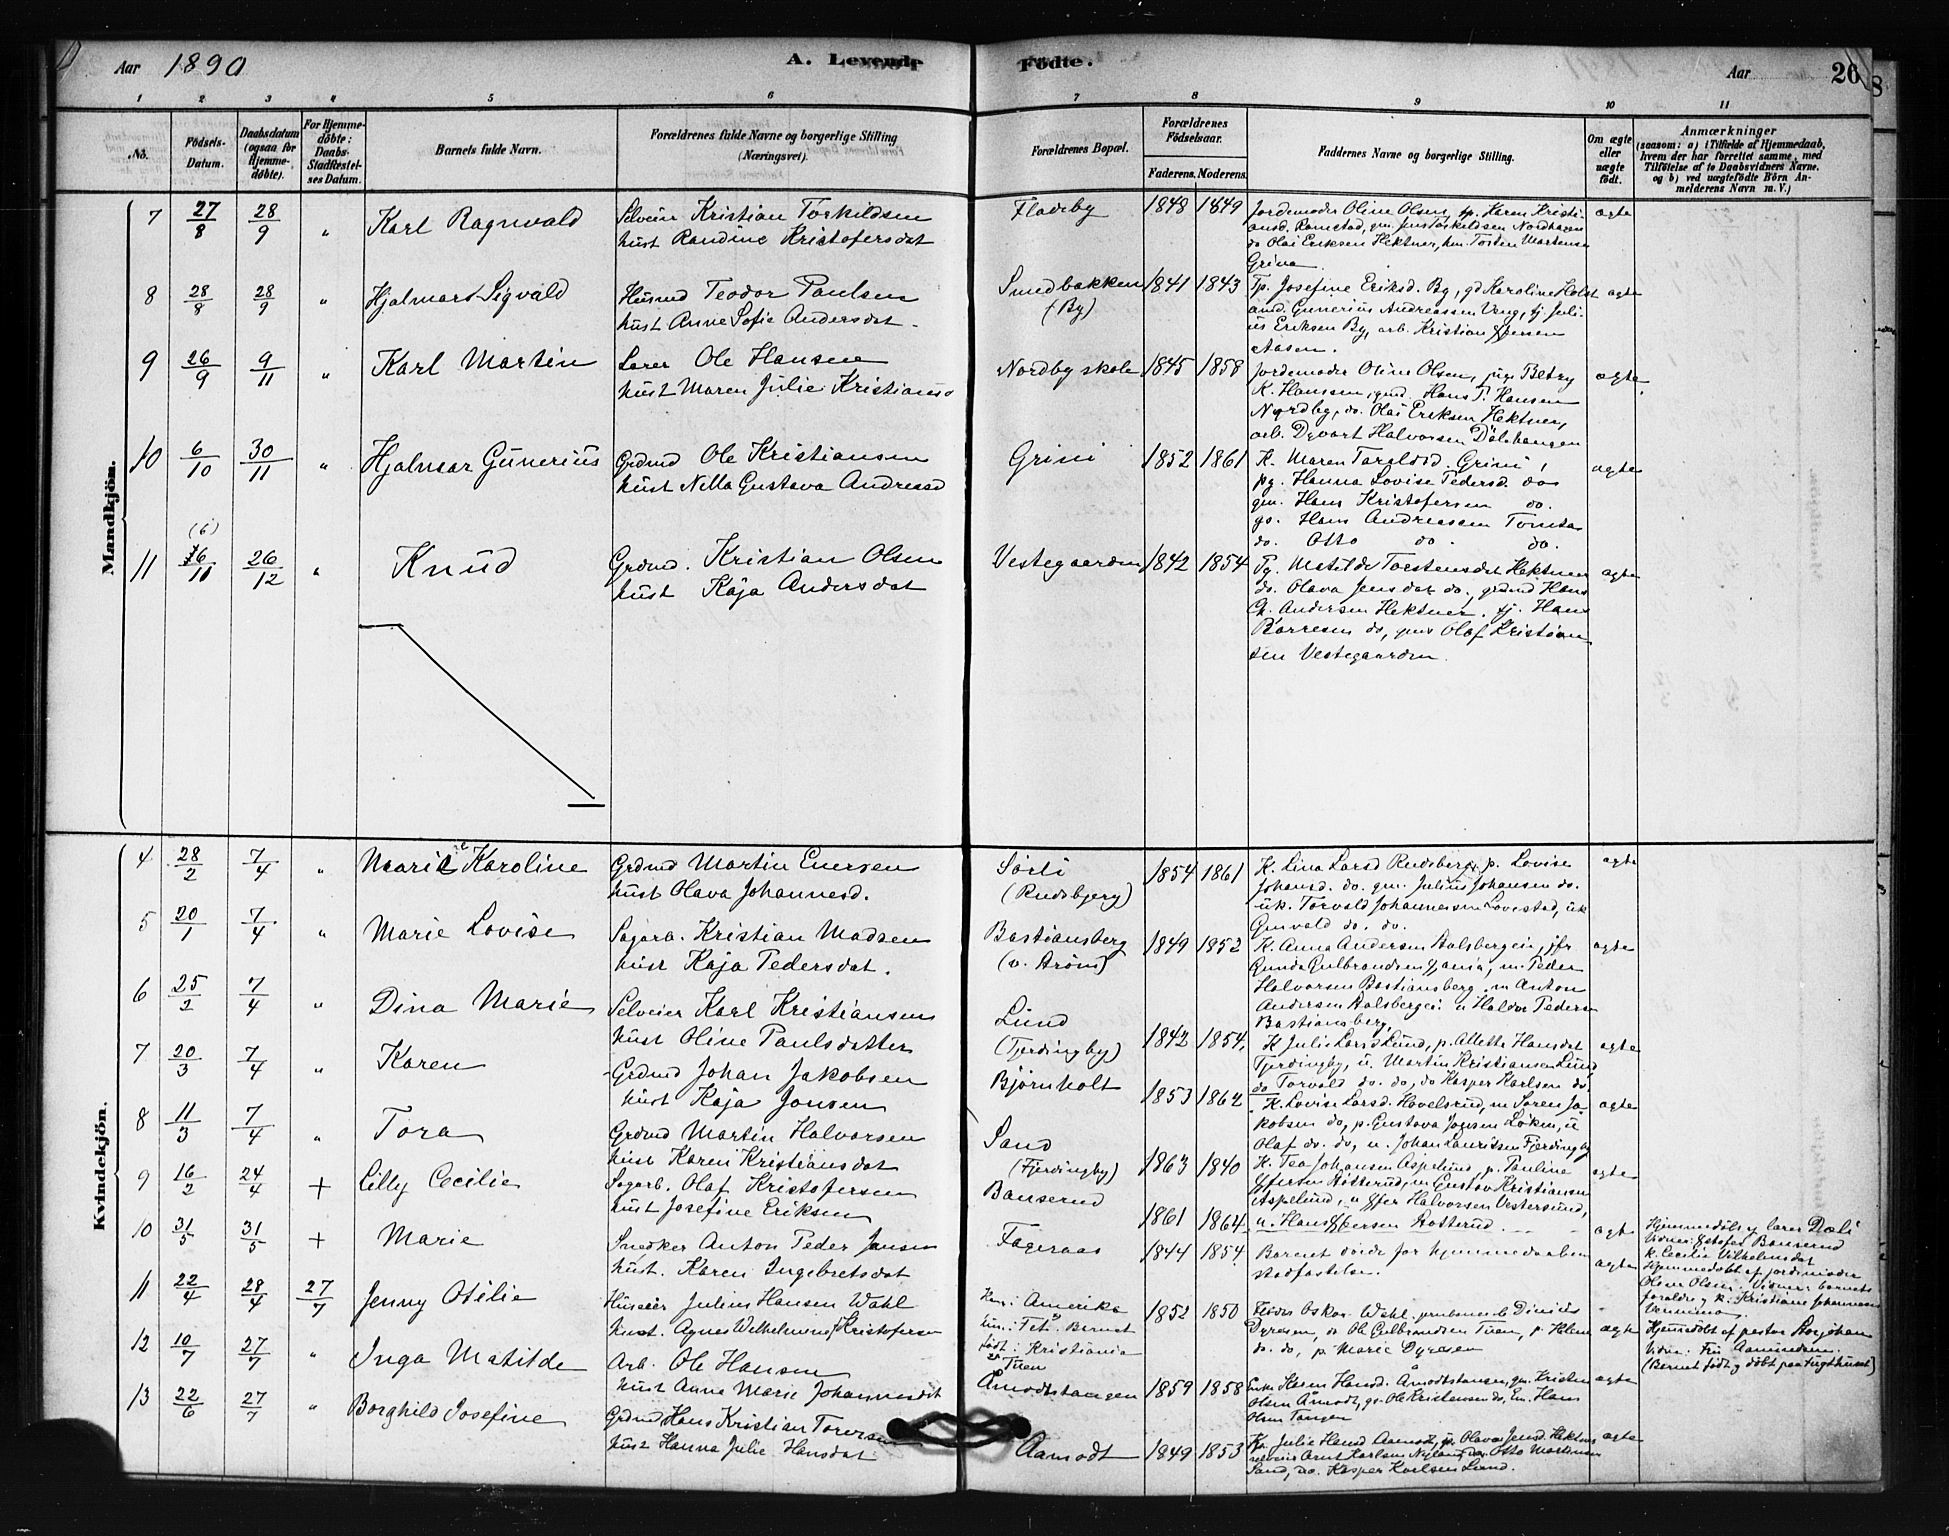 Aar 1890
A. Levende Födte.
Aar 20
8
1 2 3 4 5 6 7 8 9 10 11
No.
Födsels-Datum.
Daabsdatum (ogsaa for Hjemme-döbte).
For Hjemme-döbte: Daabs-Stadfæstel-ses Datum.
Barnets fulde Navn.
Forældrenes fulde Navne og borgerlige Stilling (Næringsvei).
Forældrenes Bopæl.
Forældrenes Födselsaar.
Faderens. Moderens.
Faddernes Navne og borgerlige Stilling.
Om ægte eller uægte födt.
Anmærkninger
(saasom: a) i Tilfælde af Hjemmedaab, hvem der har forrettet samme, med Tilföielse af to Daabsvidners Navne, og b) ved uægtefödte Börn Anmelderens Navn m. V.)
Mandkjön.
7 27/8 28/9 " Karl Ragnvald
Selveier Kristian Torkildsen
hust Randine Kristofersdat
Fladeby 1848 1849
Jordemoder Oline Olsen, p. Karen Kristi-
ansd. Ramstad, gm. Jens Torkildsen Nordhagen
do Olai Eriksen Hektner, hm. Torsten Martensen
Grina
ægte
8 28/8 28/9 " Hjalmar Sigvald
Husmd Teodor Paulsen
hust Anne Sofie Andersdat.
Sundbakken (By) 1841 1843
Tp. Josefine Eriksd. By, gd Karoline Holst
Gunerius Andreassen Veng, tj. Juli-
us Eriksen By, arb. Kristian
Aasen.
ægte
9 26/9 9/11 " Karl Martin
Lærer Ole Hansen
hust Maren Julie Kristiansd
Nordby skole 1845 1858
Jordemoder Oline Olsen, pige Betzy
K. Hanssen, gmd. Hans T. Hansen
Nordby, do. Olai Eriksen Hektner,
arb. Halvorsen
ægte
10 6/10 30/11 " Hjalmar Gunerius
Grdmd Ole Kristiansen
hust Nella Gustava Andreasd
Grini 1852 1861
K. Maren Taraldsd. Grini,
pg. Hanna Lovise Pedersd. do
gm. Hans Kristofersen do.
gs. Hans Andreassen Tomta
do. Otto do. do.
ægte
(6)
11 16/11 26/12 " Knud
Grdmd. Kristian Olsen
hust Kaja Andersdat
Vestegaarden 1842 1854
Pg. Matilde Torstensdat Hektner
do. Olava Jensdat do., grdmd Hans
Ch. Andersen Hektner. tj. Hans
Børresen do, gms Olaf Kristian
sen Vestegaarden.
ægte
Kvindekjön.
4 28/2 7/4 " Marie Karoline
Grdmd Martin Evensen
hust Olava Johannesd.
Sörli (Rudsbjerg) 1854 1861
K. Lina Larsd Rudsberg, p. Lovise
Johansd. do. gm. Julius Johansen do.
uk. Torvald Johannessen Lovestad, uk
Gunvald do. do.
ægte
5 20/1 7/4 " Marie Lovise
Sagarb. Kristian Madsen
hust Kaja Pedersdat.
Bastiansberg 1849 1852
K. Anna Andersen jfr
Gunda Gulbrandsen m. Peder
Halvorsen Bastiansberg, m Anton
Andersen u Haldor Pedersen
Bastiansberg
ægte
6 25/2 7/4 " Dina Marie
Selveier Karl Kristiansen
hust Oline Paulsdatter
Lund (Fjerdingby) 1842 1854.
K Julie Larsd Lund, p. Allette Hansdat
Fjerdingby, u. Martin Kristiansen Lund
do Torvald do. do, do Kasper Karlsen do.
ægte
7 20/3 7/4 " Karen
Grdmd Johan Jakobsen
hust Kaja Jonsen
Björnholt 1853 1862
K. Lovise Larsd. Hovelsrud, m Sören Ja-
kobsen do, p. Gustava Løken, u
Olaf do. do, u. Johan Lauritsen Fjerdingby
ægte
8 11/3 7/4 " Tora
Grdmd Martin Halvorsen
hust Karen Kristiansdat
Sand (Fjerdingby) 1863 1840
K. Tea Johansen Aspelund, p. Pauline
m Gustav Kristiansen
Aspelund, u Halvorsen Vestersund,
ægte
9 16/2 24/4 + Lilly Cecilie
Sagarb. Olaf Kristofersen
hust Josefine Eriksen
Banserud 1861 1864
ægte
Hjemmedöbt af lærer Dæli
Banserud
k. Cecilie Vilhelmsdat
10 31/5 31/5 + Marie
Snedker Anton Peder Jansen
hust. Karen Ingebretsdat
Fageraas 1844 1854.
Barnet döde för hjemmedaaben
stadfæstelse.
ægte
Hjemmedöbt af jordemoder
Olsen Vidner: barnets
forældre & k. Kristiane Johannesen
11 22/4 28/4 27/7 Jenny Otilie
Huseier Julius Hansen Wahl
hust. Agnes Wilhelmine Kristofersen
Han: i Amerika
Barnet
födt: i Kristiania
1852 1850
Oskar Wahl,
Dyresen, do Ole Gulbrandsen Tuen, p. Helene
do. do, p. Marie Dyresen
ægte
Hjemmedöbt af pastor
Vidne: Fru Aamundsen.
(Barnet födt & döbt paa Tugthuset)
12 10/7 27/7 " Inga Matilde
Arb. Ole Hansen
hust Anne Marie Johannesdat
Åmodtstangen 1859 1858
Enke Karen Hansd. Åmodtstangen, gm. Kristen
Olsen Åmodt, gs. Ole Kristensen do, Em. Hans
Olsen Tangen
ægte
13 22/6 27/7 " Borghild Josefine
Grdmd Hans Kristian Torersen
hust Hanna Julie Hansdat.
Aamodt 1849 1853
Kp. Julie Hansd Aamodt, p. Olava Jensd Hektner
selveier Arnt Karlsen Nyland, do Otto Martinsen
Sand, do. Kasper Karlsen Lund.
ægte